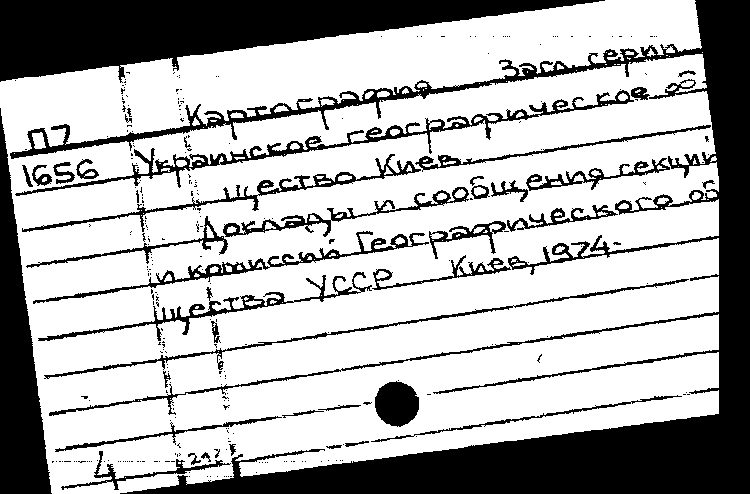 Картография Загл. серии
П7
1656
Украинское географическое об-
щество. Киев.
Доклады и сообщения секций
и комиссий Географического об
щества УССР. Киев, 1974-
4